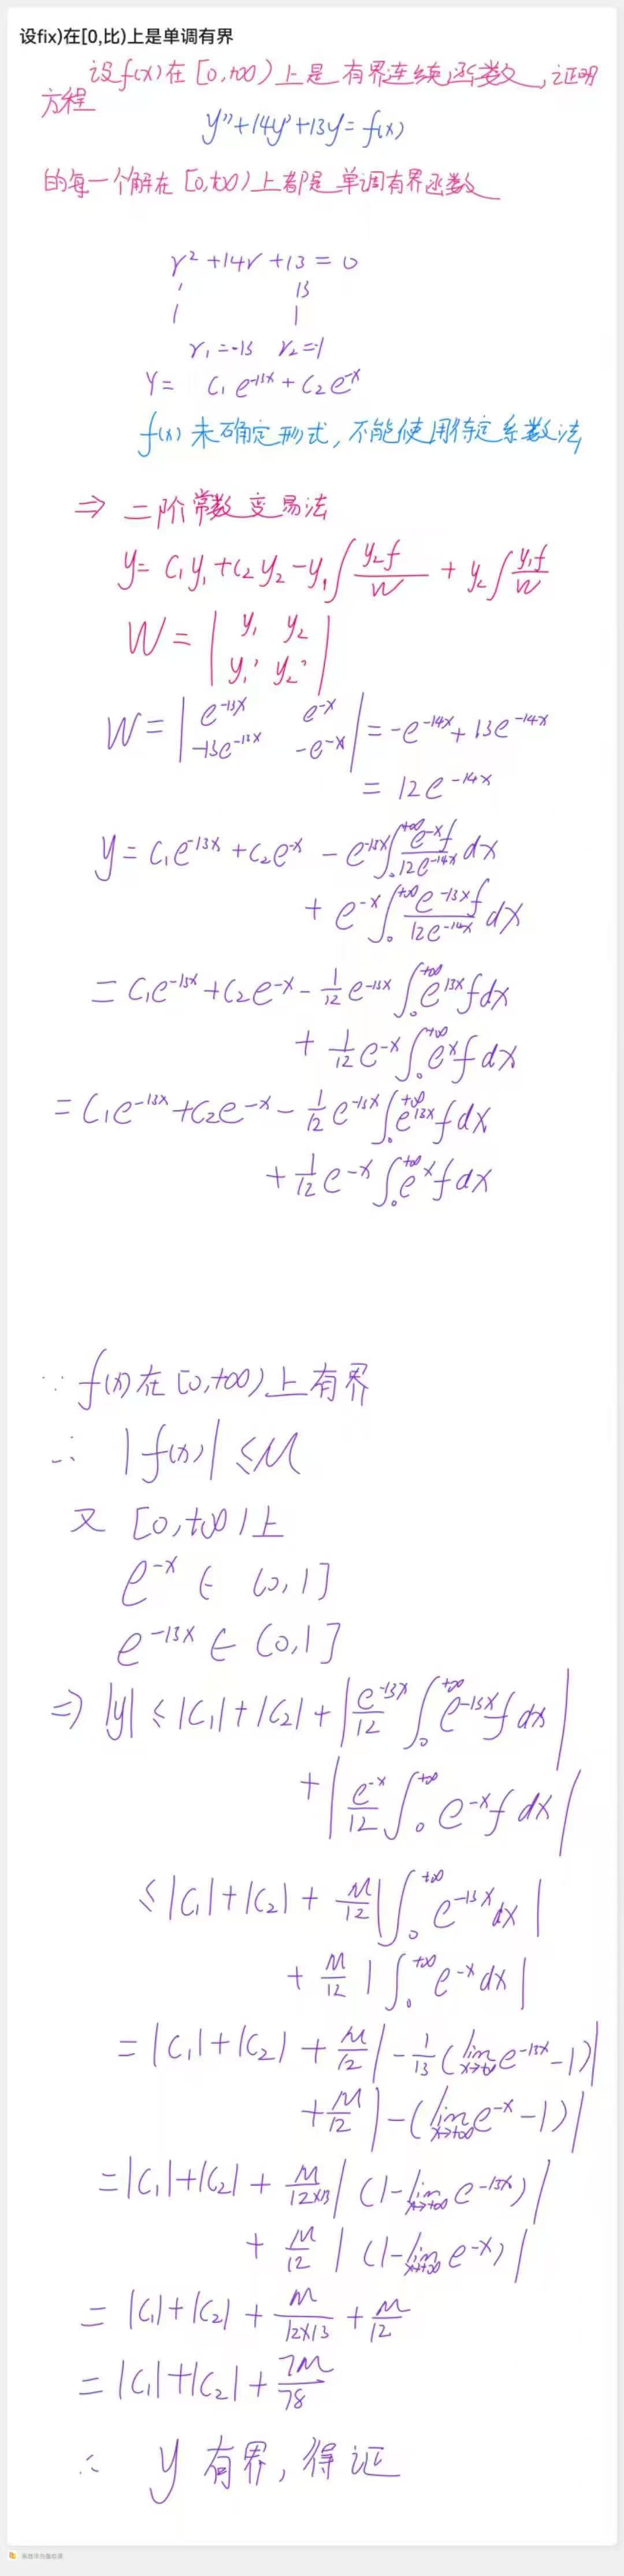 设fix)在[0,比)上是单调有界
设f(x)在[0,+∞)上是有界连续函数,证明
方程
y''+14y'+13y=f(x)
的每一个解在[0,+∞)上都是单调有界函数
r²+14r+13=0
1 13
1 1
r₁=-13 r₂=-1
Y= C₁e^{-13x}+C₂e^{-x}
f(x)未确定形式,不能使用待定系数法
⇒ 二阶常数变易法
y=C₁y₁+C₂y₂-y₁∫\frac{y₂f}{W}+y₂∫\frac{y₁f}{W}
W=|y₁ y₂
y₁' y₂'|
W=|e^{-13x} e^{-x}
-13e^{-13x} -e^{-x}|=-e^{-14x}+13e^{-14x}
=12e^{-14x}
y=C₁e^{-13x}+C₂e^{-x}-e^{-13x}∫₀^{+∞}\frac{e^{-x}f}{12e^{-14x}}dx
+e^{-x}∫₀^{+∞}\frac{e^{-13x}f}{12e^{-14x}}dx
=C₁e^{-13x}+C₂e^{-x}-\frac{1}{12}e^{-13x}∫₀^{+∞}e^{13x}fdx
+\frac{1}{12}e^{-x}∫₀^{+∞}e^{x}fdx
=C₁e^{-13x}+C₂e^{-x}-\frac{1}{12}e^{-13x}∫₀^{+∞}e^{13x}fdx
+\frac{1}{12}e^{-x}∫₀^{+∞}e^{x}fdx
∵f(x)在[0,+∞)上有界
∴ |f(x)|≤M
又[0,+∞)上
e^{-x}∈(0,1]
e^{-13x}∈(0,1]
⇒|y|≤|C₁|+|C₂|+|\frac{e^{-13x}}{12}∫₀^{+∞}e^{-13x}fdx|
+|\frac{e^{-x}}{12}∫₀^{+∞}e^{-x}fdx|
≤|C₁|+|C₂|+\frac{M}{12}|∫₀^{+∞}e^{-13x}dx|
+\frac{M}{12}|∫₀^{+∞}e^{-x}dx|
=|C₁|+|C₂|+\frac{M}{12}|-\frac{1}{13}(\lim_{x→+∞}e^{-13x}-1)|
+\frac{M}{12}|-(\lim_{x→+∞}e^{-x}-1)|
=|C₁|+|C₂|+\frac{M}{12×13}|(1-\lim_{x→+∞}e^{-13x})|
+\frac{M}{12}|(1-\lim_{x→+∞}e^{-x})|
=|C₁|+|C₂|+\frac{M}{12×13}+\frac{M}{12}
=|C₁|+|C₂|+\frac{7M}{78}
∴ y有界,得证